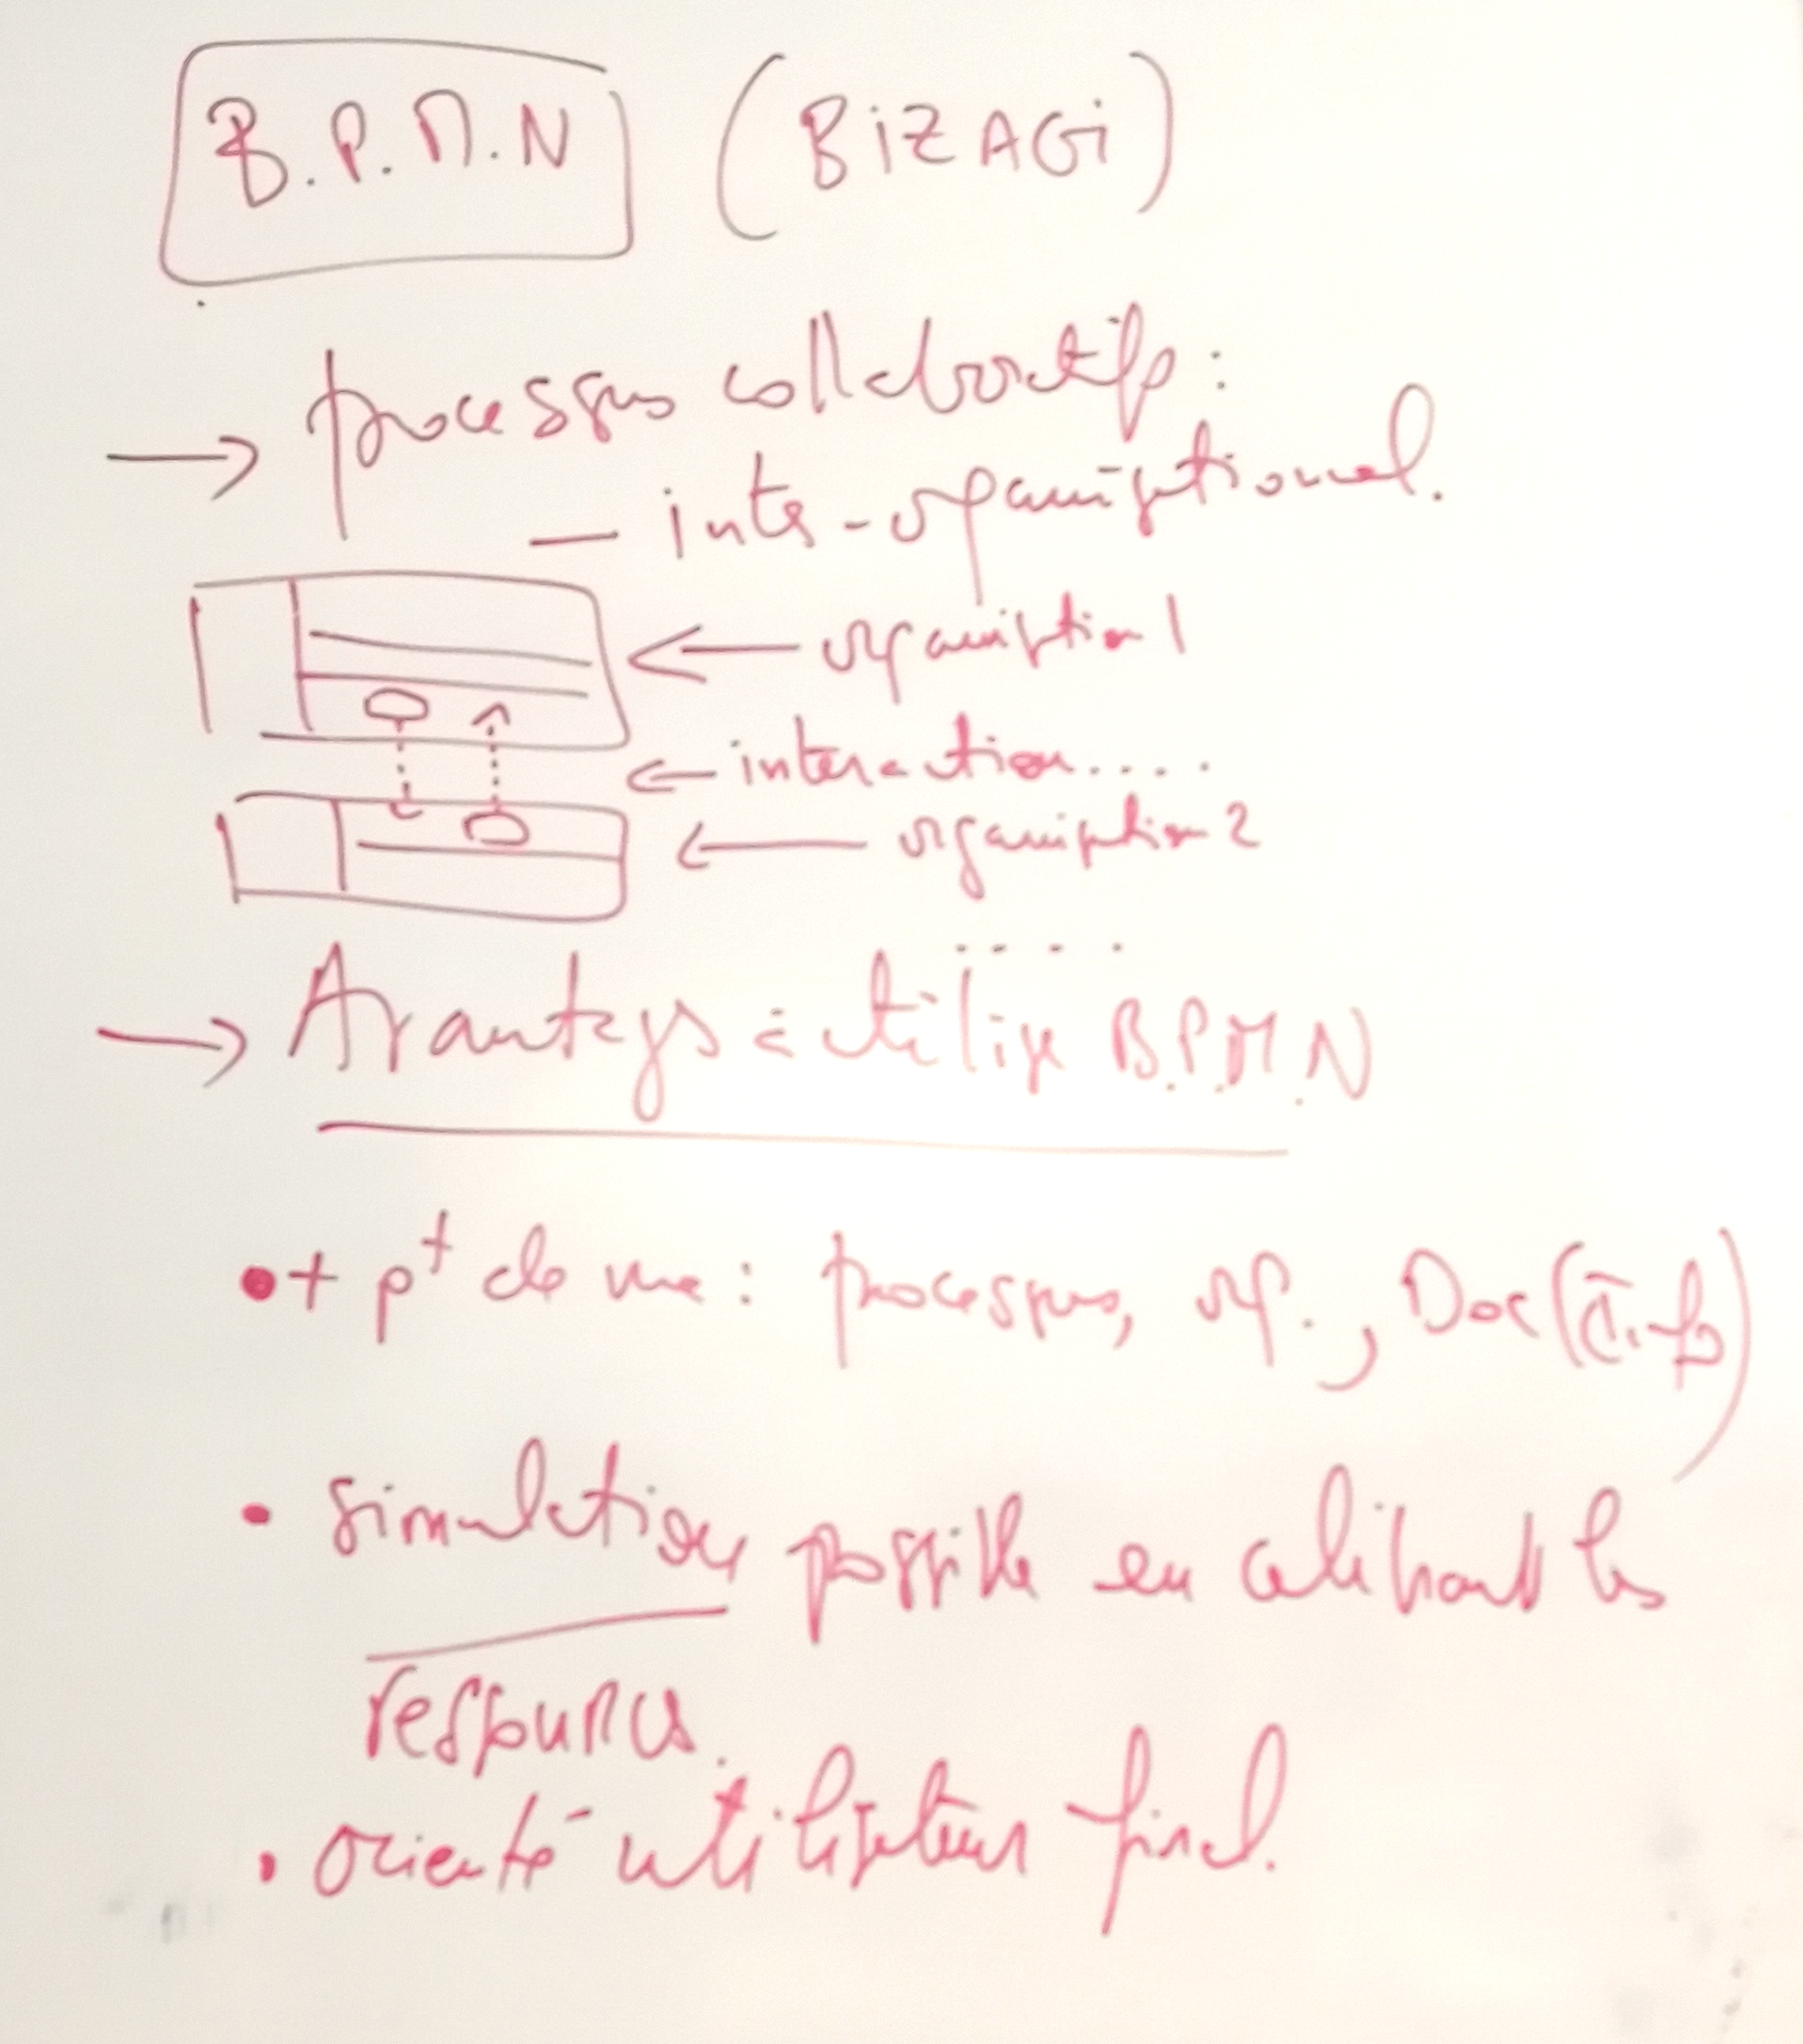 B.P.M.N (BiZAGi)
→ processus collaboratifs :
— inter-organisationnel.
← organisation 1
← interaction....
← organisation 2
....
→ Avantages à utiliser B.P.M.N
• + pt de vue : processus, org., Doc (
• simulation possible en calibrant les
ressources.
• orienté utilisateur final.